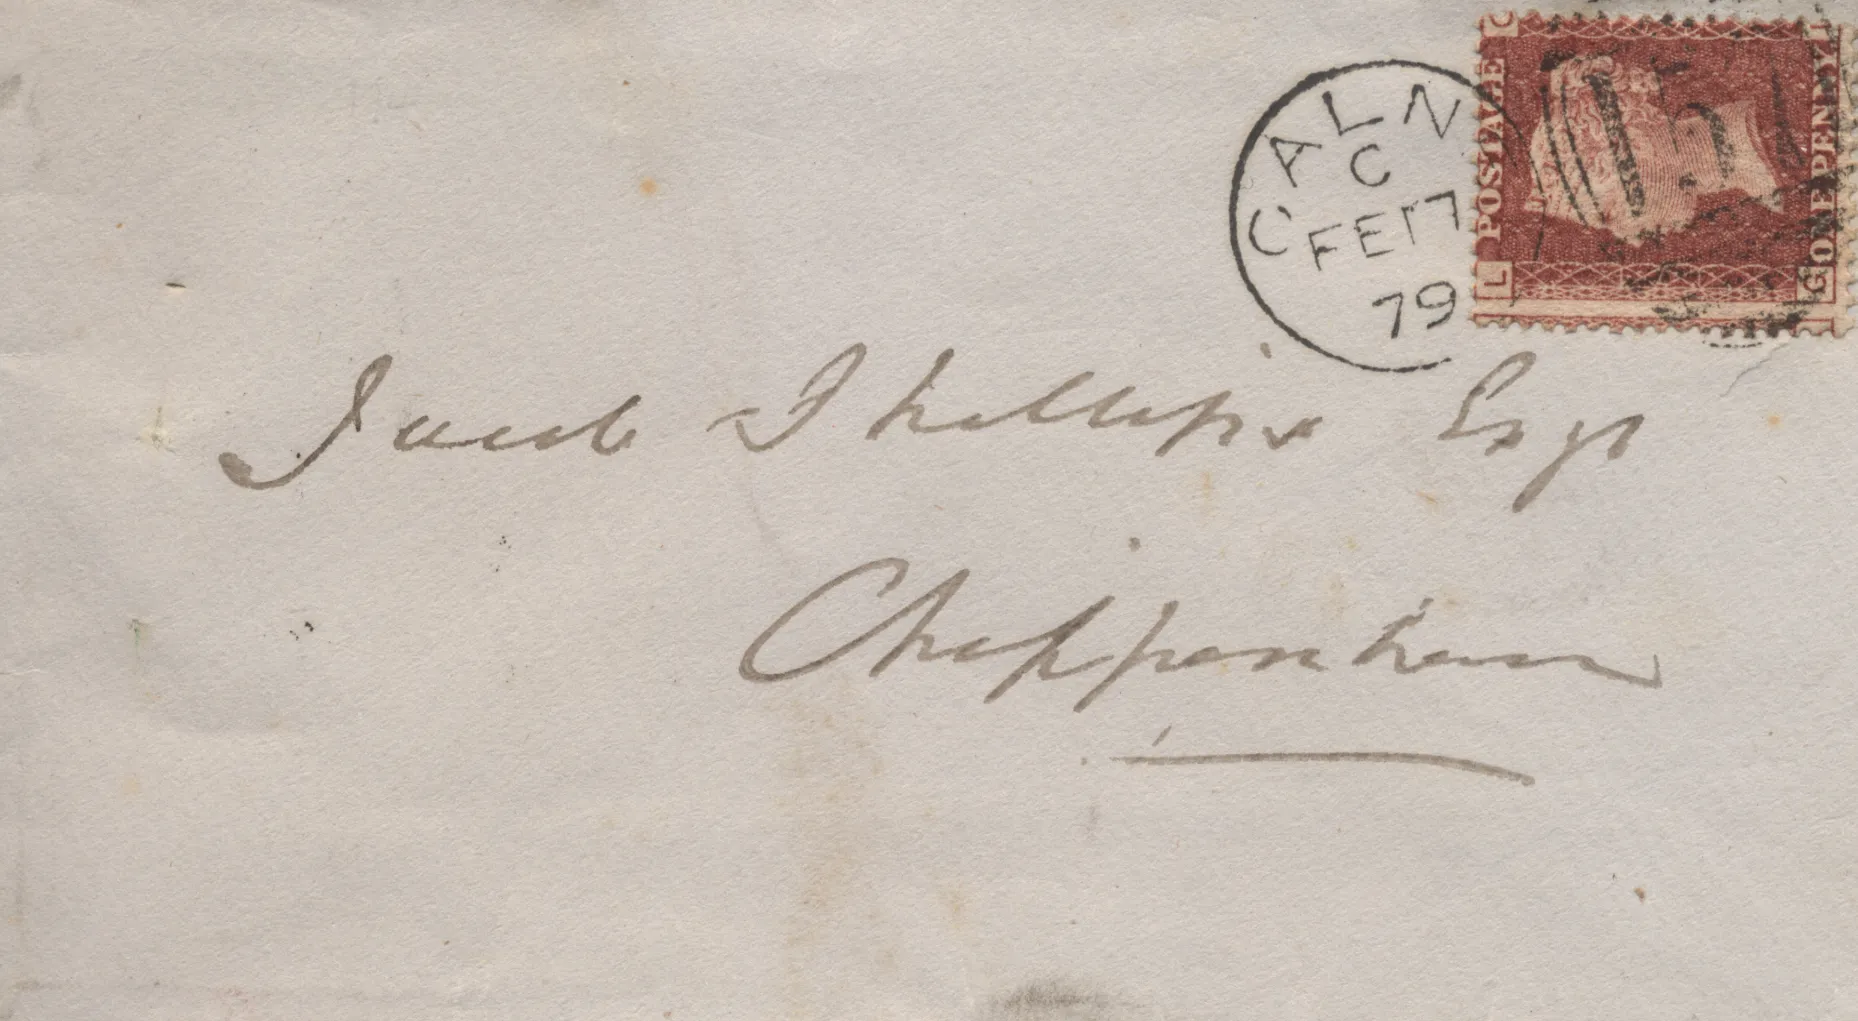 CALN
C
FE 17
79
POSTAGE
ONE PENNY
L G
Jacob Phillips Esqr
Chippenham